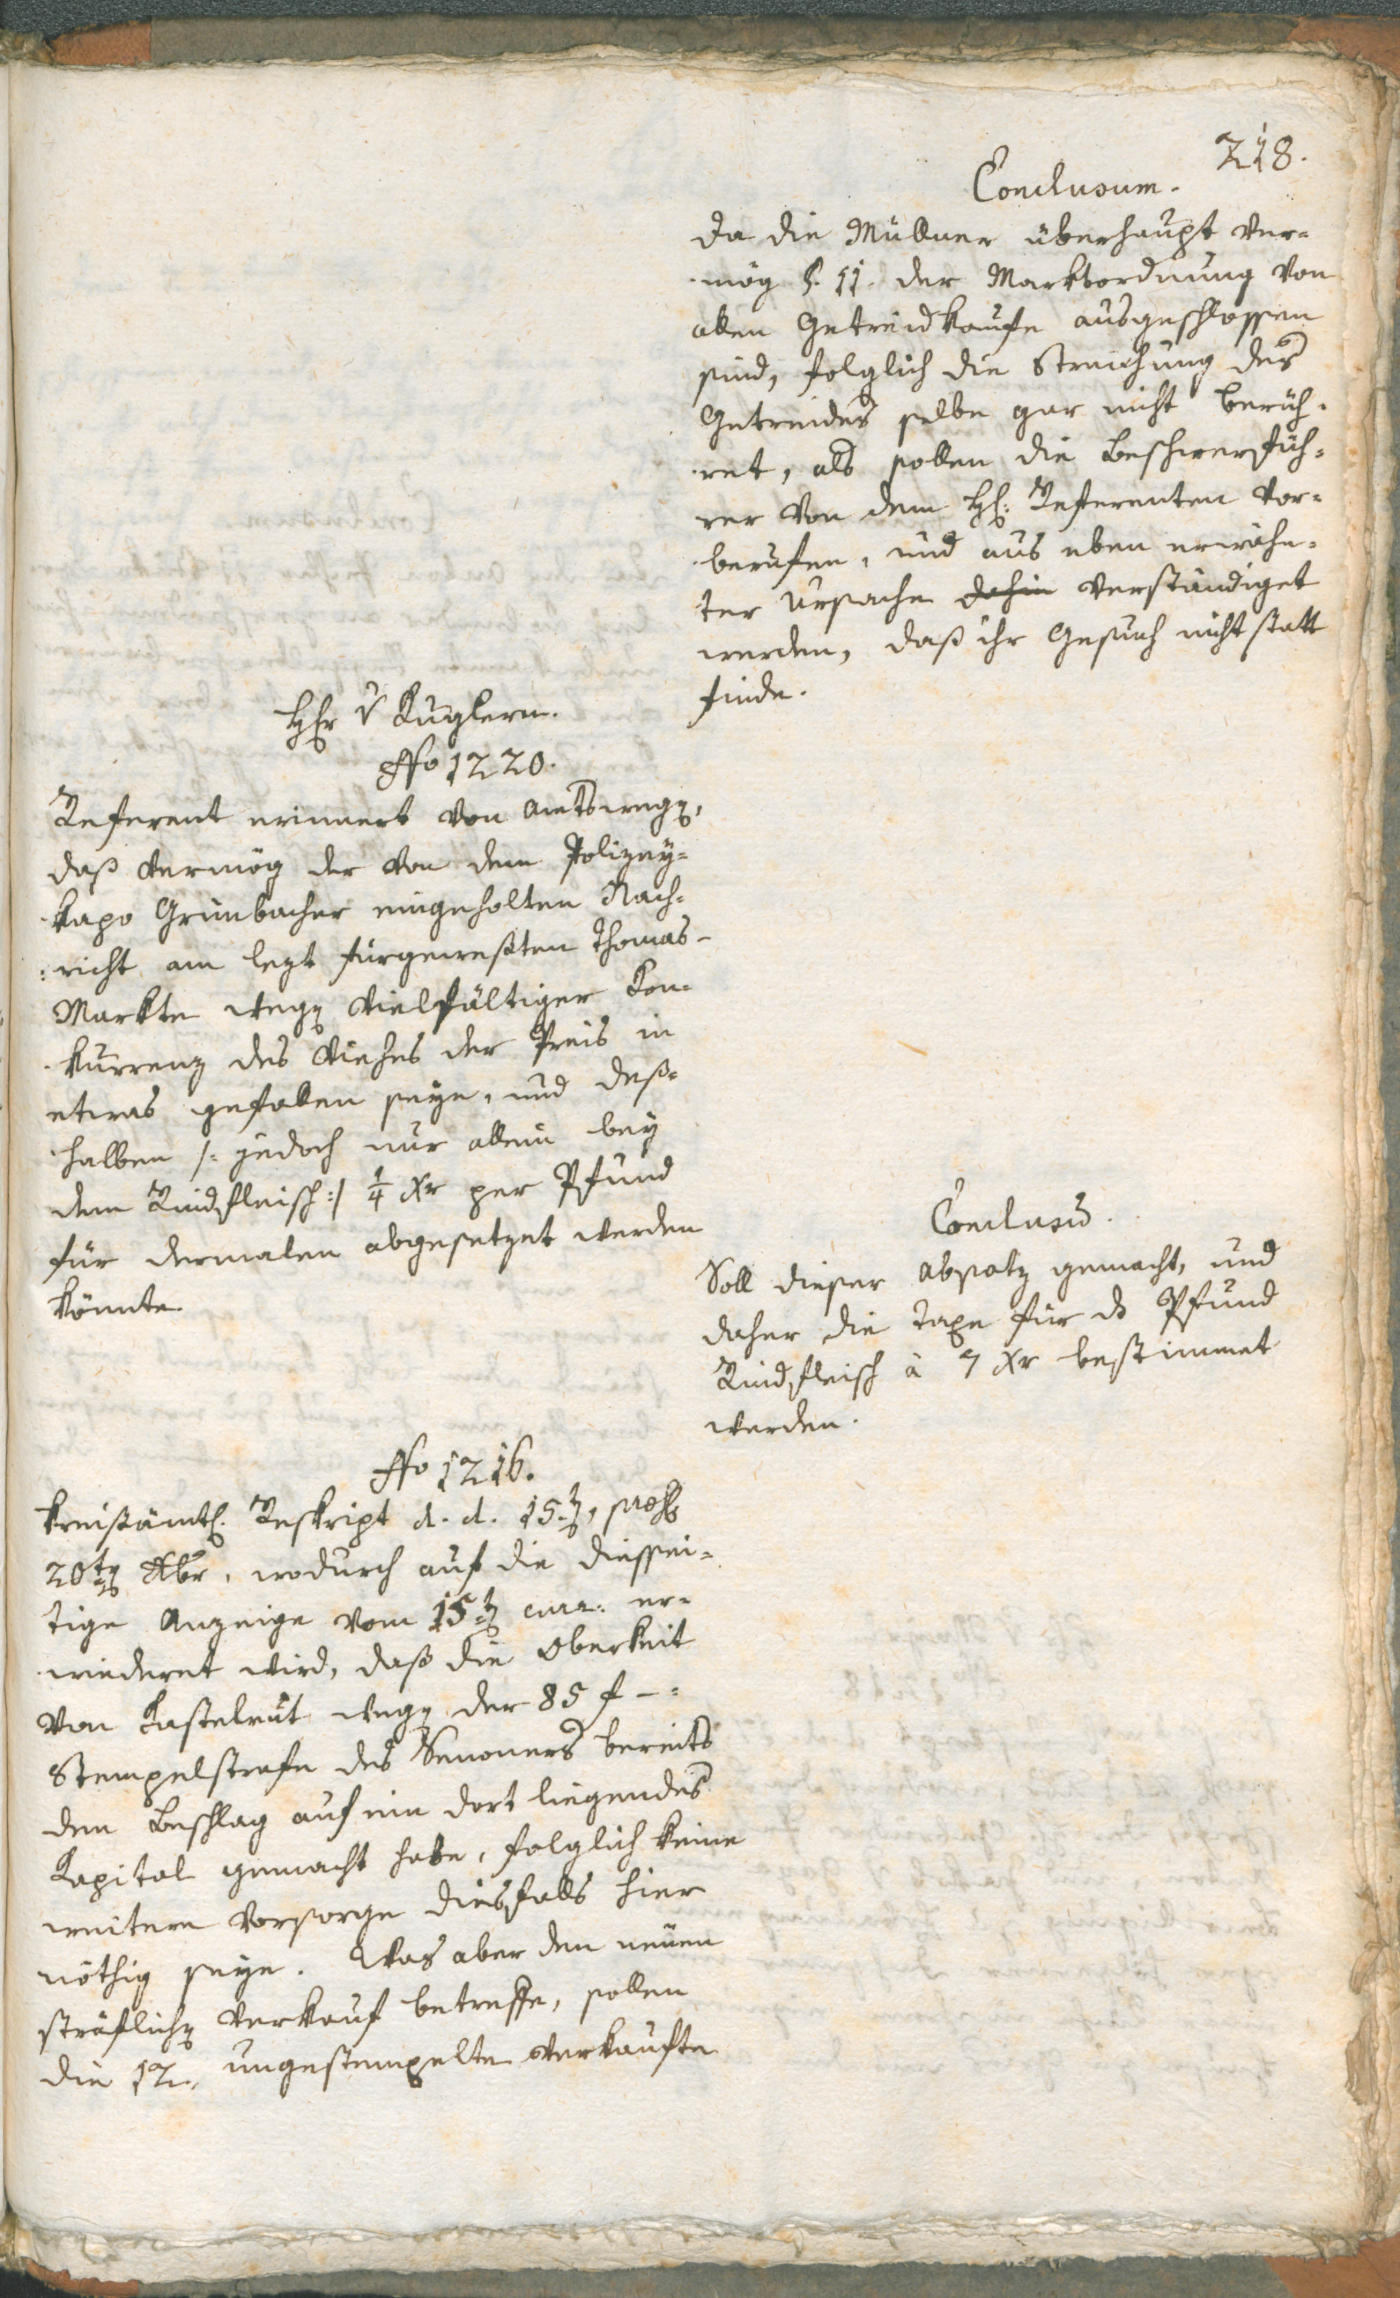 218.
Conclusum.
da die Müllner überhaupt ver¬
mög §. 11. der Marktordnung von
allen Getreidkaufe ausgeschlossen
sind, folglich die Streichung des
Getreides selbe gar nicht berüh¬
ret, als sollen die Beschwerfüh¬
rer von dem H: Referenten vor¬
berufen, und aus eben erwähn¬
ter Ursache dahin verständiget
werden, daß ihr Gesuch nicht statt
finde.
Hr v Kuglern.
No 1220.
Referent erinnert von Amtswegen,
daß vermög der von dem Polizey¬
kapo Grünbacher eingeholten Nach¬
richt am lezt fürgewesten Thomas¬
Markte wegen vielfältiger Kon¬
kurrenz des Viehes der Preis in
etwas gefallen seye, und deß¬
halben /: jedoch nur allein bey
dem Rindfleisch :/ 1/4 Xr per Pfund
für dermalen abgesetzet werden
könnte.
Conclusū.
Soll dieser Absatz gemacht, und
daher die Taxe für ds Pfund
Rindfleisch à 7 Xr bestimmet
werden.
No 1216.
Kreisämtl: Reskript d. d. 15ten, præs
20ten Xbr, wodurch auf die diessei¬
tige Anzeige vom 15ten curr: er¬
wiederet wird, daß die Oberkeit
von Kastelrut wegen der 85 f –:
Stempelstrafe des Senoners bereits
den Beschlag auf ein dort liegendes
Kapital gemacht habe, folglich keine
weitere Vorsorge diesfalls hier
nöthig seye. Was aber den neuen
sträflichen Verkauf betreffe, sollen
die 12 ungestempelte verkaufte